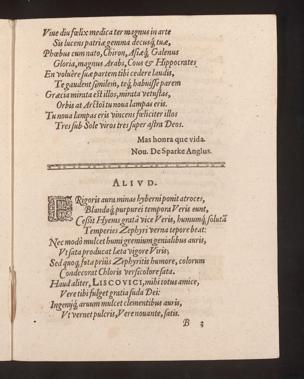 Vive diu fœlix medica ter magnus in arte
Sis lucens patriæ gemma decusq; tuæ,
Phœbus cum nato, Chiron, Asiæq; Galenus
Gloria, magnus Arabs, Cous & Hippocrates
En voluêre suæ partem tibi cedere laudis,
Te gaudent similem, teq; habuisse parem
Græcia mirata est illos, mirata vetustas,
Orbis at Arctoi tu nova lampas eris.
Tu nova lampas eris vincens fœliciter illos
Tres sub Sole viros tres super astra Deos.
Mas honra que vida.
Nou. De Sparke Anglus.
ALIUD.
FRigoris aura minas hyberni ponit atroces,
Blandaq; purpurei tempora Veris eunt,
Cessit Hyems grata vice Veris, humumq; solutã
Temperies Zephyri verna tepore beat:
Nec modò mulcet humi gremium genialibus auris,
Ut sata producat læta vigore Viris;
Sed quoq; fota priùs Zephyritis humore, colorum
Condecorat Chloris versicolore sata.
Haud aliter, LISCOVICI, mihi totus amice,
Vere tibi fulget gratia fusa Dei:
Ingenijq; arvum mulcet clementibus auris,
Ut vernet pulcris, Vere novante, satis.
B 3